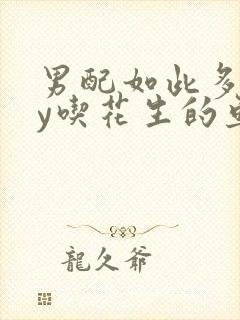 男配如此多
y喫花生的
龍久爺